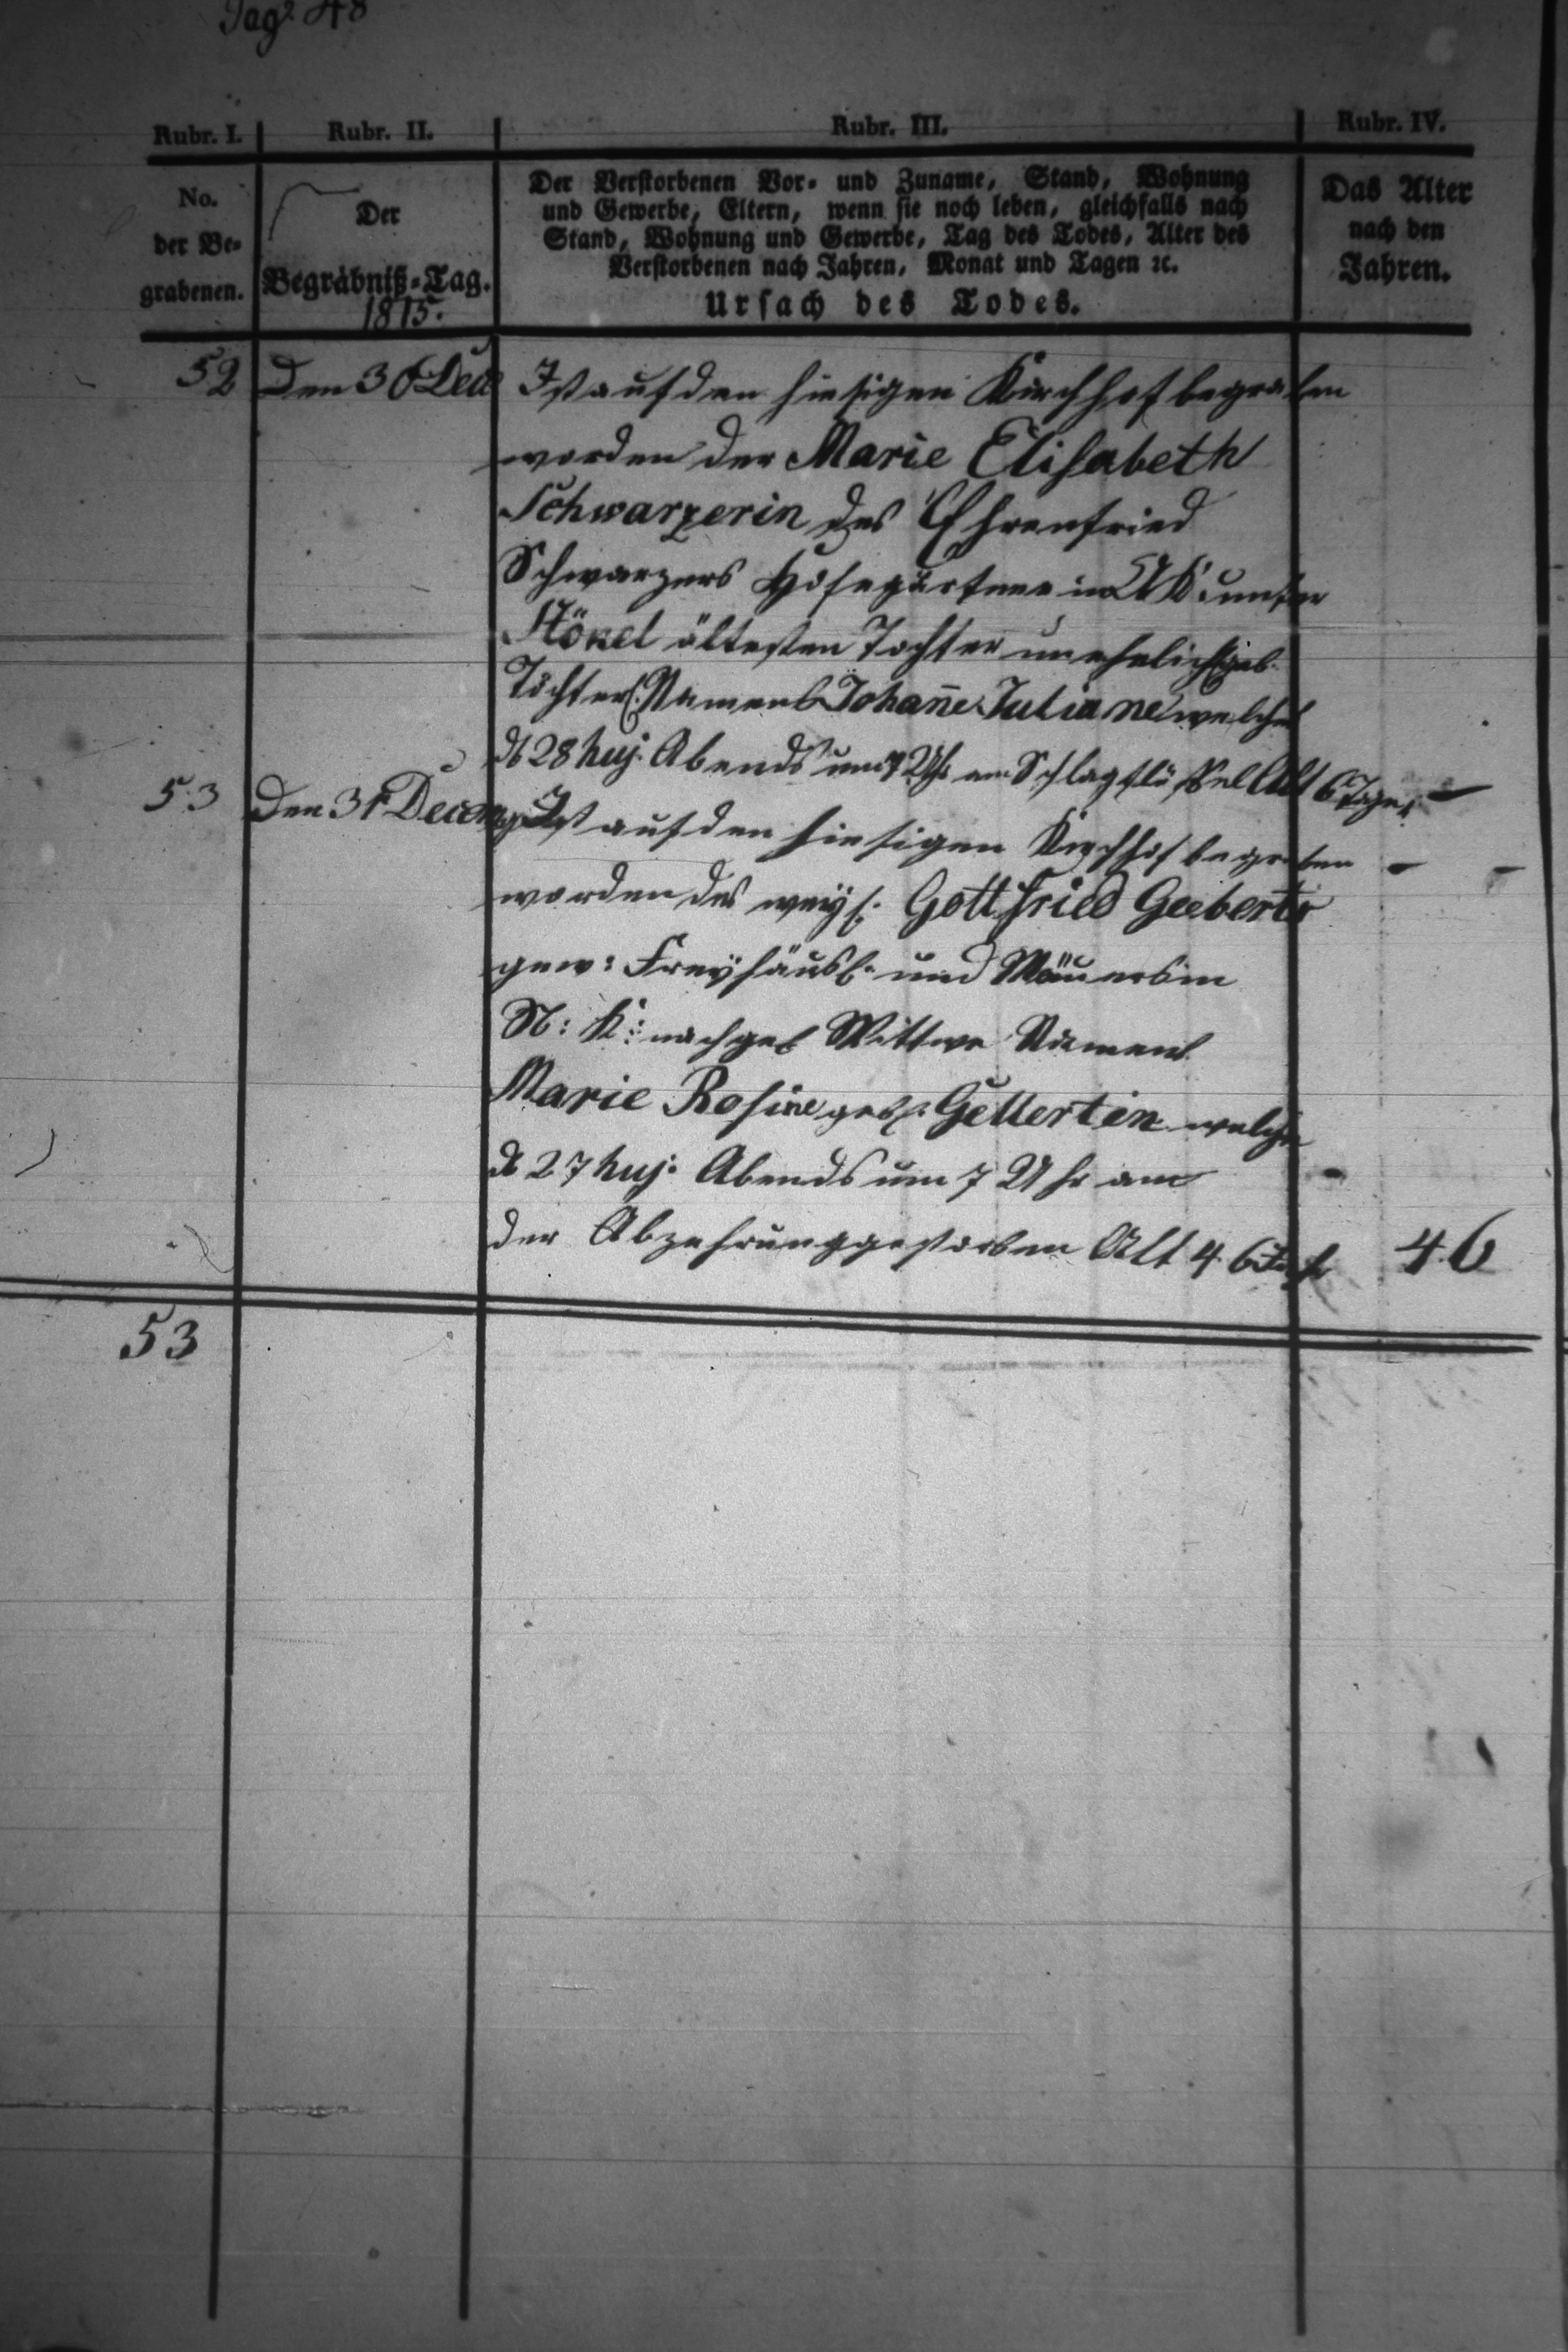 Pag. 48
Rubr. I. Rubr. II. Rubr. III. Rubr. IV.
No. der Be-grabenen.
Der Begräbniß-Tag.
1815.
Der Verstorbenen Vor- und Zuname, Stand, Wohnung
und Gewerbe, Eltern, wenn sie noch leben, gleichfalls nach
Stand, Wohnung und Gewerbe, Tag des Todes, Alter des
Verstorbenen nach Jahren, Monat und Tagen ꝛc.
Ursach des Todes.
Das Alter
nach den
Jahren.
52 Den 30 Dec Ist auf den hiesigen Kirchhof begraben
worden der Marie Elisabeth
Schwarzerin des Ehrenfried
Schwarzers Hofegärtner in
ältesten Tochter unehelich geb.
Töchterl. Namens Johañe Juliane welches
d 28 huj. Abends um Uhr am Schlagfluß Alt 6 Tage
53 Den 31 Decem Ist auf den hiesigen Kirchhof begraben
worden des weyl. Gottfried Geeberts
gew: Freyhäusl. und Mäuers in
N: K: nachgel Wittwe Namens
Marie Rosine geb. Gellertin welche
d 27 huj. Abends um 7 Uhr an
der Abzehrung gestorben Alt 46 Jahr 46
53